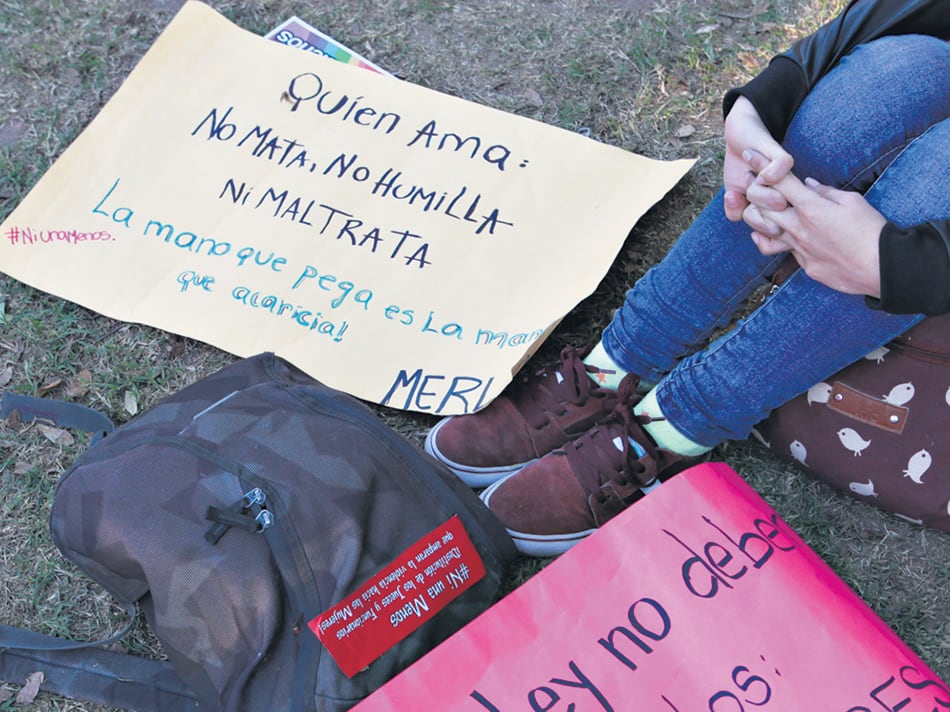 Quien Ama:
No MATA, No HUMILLA
Ni MALTRATA
#NiUnaMenos.
La mano que pega es La man
que acaricia!
MERL
#Ni una Menos
¡Destitución de los Jueces y Funcionarios
que amparan la violencia hacia las Mujeres!
Ley no debe
os:
RES